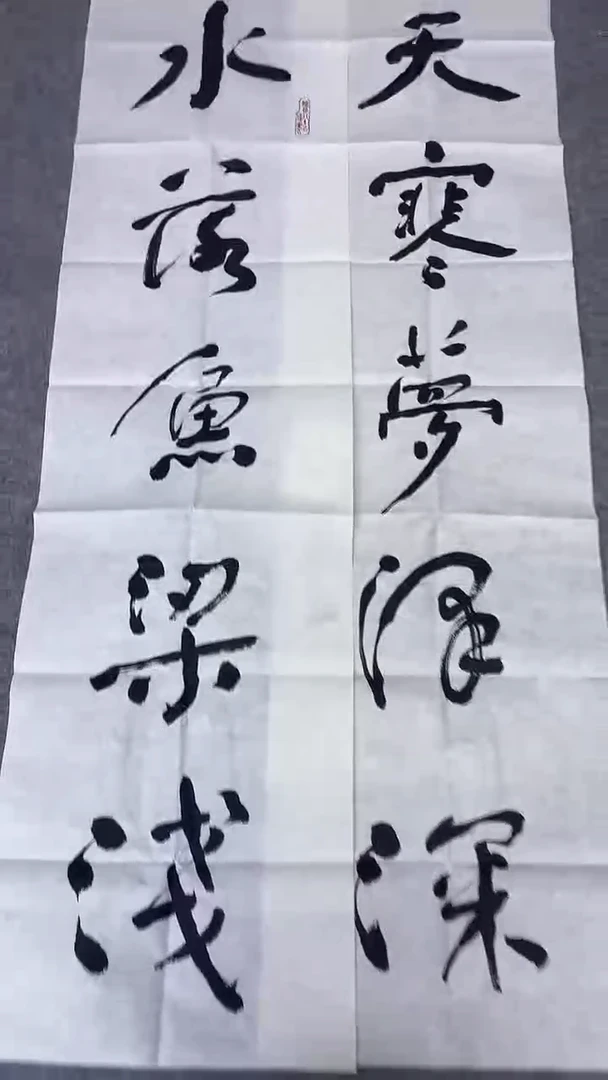 天寒夢澤深
水落魚梁淺